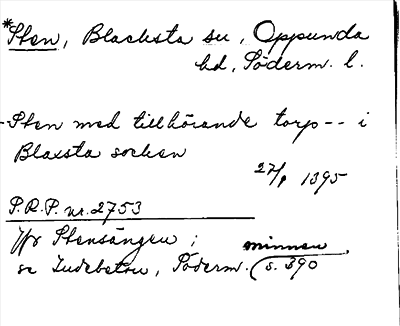 *Sten, Blacksta sn, Oppunda
hd, Söderm. l.
-Sten med tillhörande torp -- i
Blaxsta socken
27/1 1395
P.R.P. nr. 2753
Jfr Stensängen i
minnen
se Ludgebetou, Söderm. s. 390